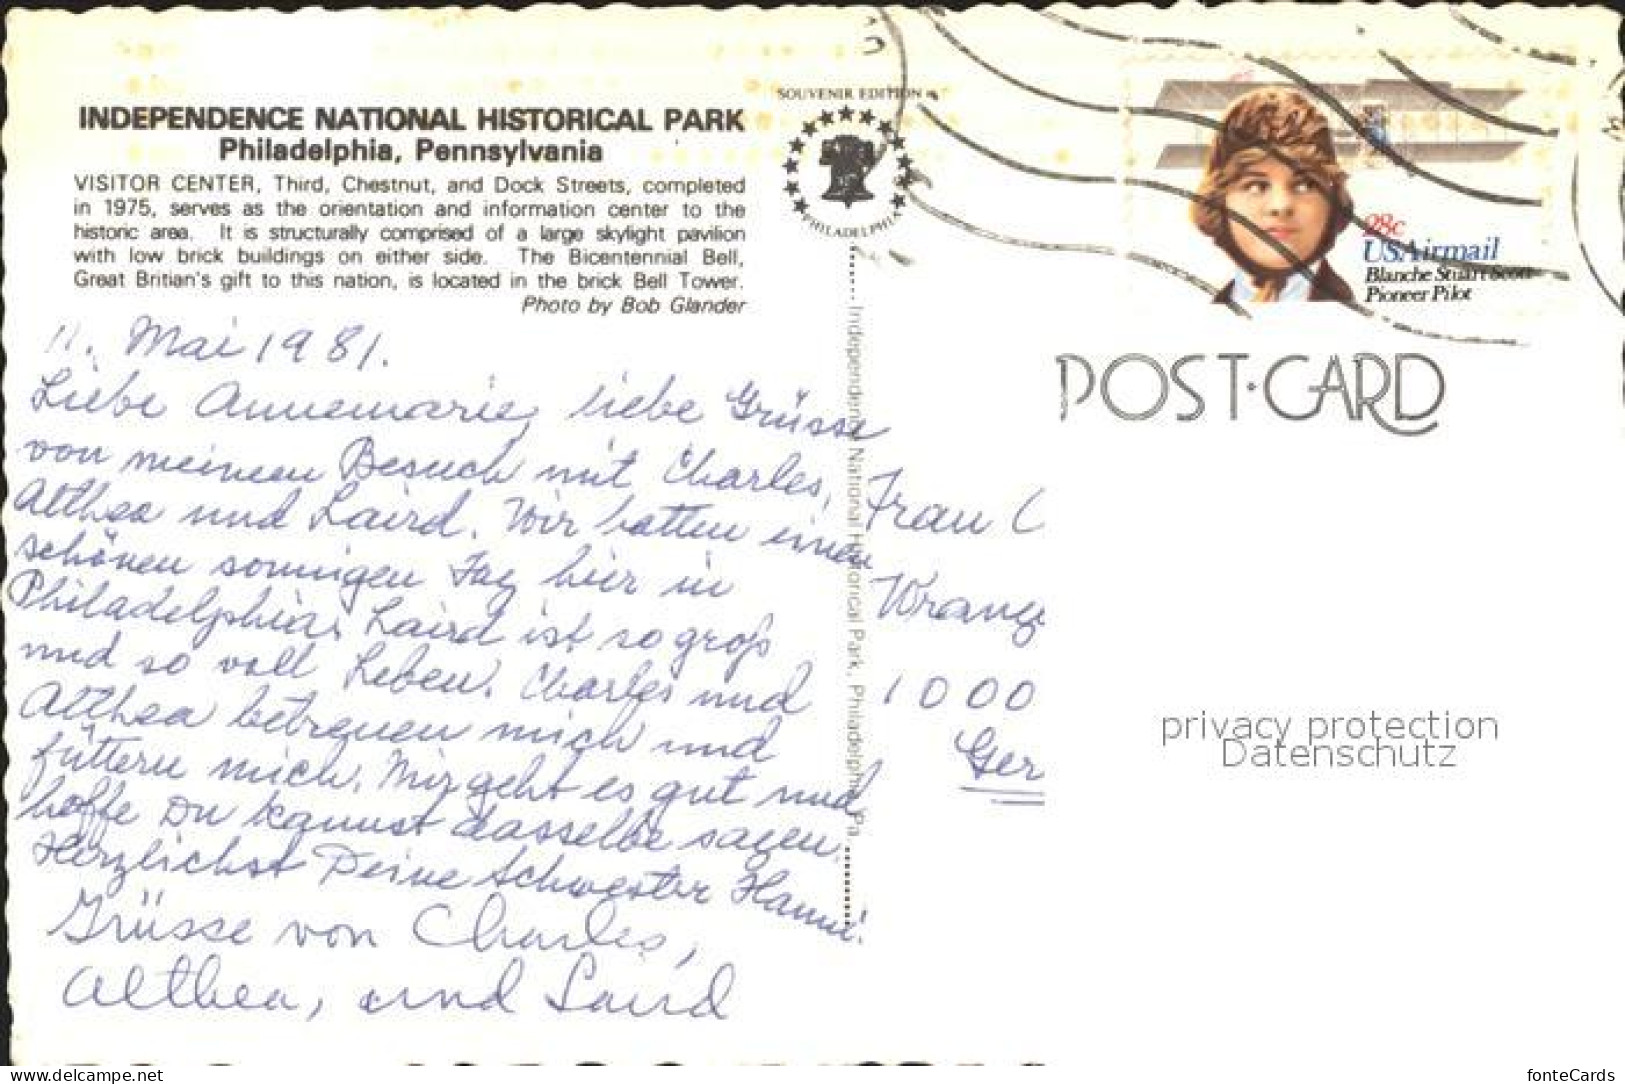 SOUVENIR EDITION
PHILADELPHIA
INDEPENDENCE NATIONAL HISTORICAL PARK
Philadelphia, Pennsylvania
VISITOR CENTER, Third, Chestnut, and Dock Streets, completed
in 1975, serves as the orientation and information center to the
historic area. It is structurally comprised of a large skylight pavilion
with low brick buildings on either side. The Bicentennial Bell,
Great Britian's gift to this nation, is located in the brick Bell Tower.
Photo by Bob Glander
11. Mai 1981.
Liebe Annemarie, liebe Grüsse
von meinem Besuch mit Charles,
Althea und Laird. Wir hatten einen
schönen sonnigen Tag hier in
Philadelphia. Laird ist so groß
und so voll Leben. Charles und
Althea betreuen mich und
füttern mich. Mir geht es gut und
hoffe Du kannst dasselbe sagen.
Herzlichst Deine Schwester Hanni.
Grüsse von Charles,
Althea, und Laird
Independence National Historical Park, Philadelphia, Pa.
28c
USAirmail
Blanche Stuart Scott
Pioneer Pilot
POST·CARD
Frau
Wrange
1000
Ger
privacy protection
Datenschutz
www.delcampe.net
fonteCards